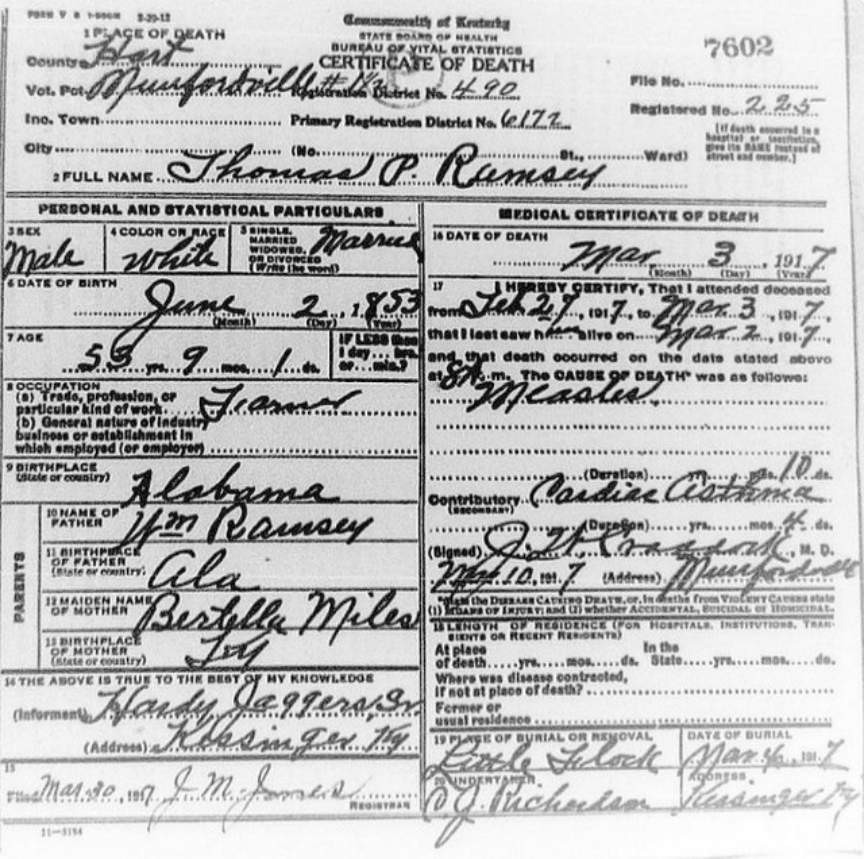 FORM V S 1-50M 3-20-12
Commonwealth of Kentucky
STATE BOARD OF HEALTH
BUREAU OF VITAL STATISTICS
CERTIFICATE OF DEATH
7602
1 PLACE OF DEATH
County Hart
Vot. Pct. Munfordville # 1½ Registration District No. 490
File No.
Registered No. 225
Inc. Town Primary Registration District No. 6172
[If death occurred in a hospital or institution, give its NAME instead of street and number.]
City (No. St., Ward)
2 FULL NAME Thomas P. Rumsey
PERSONAL AND STATISTICAL PARTICULARS
3 SEX Male
4 COLOR OR RACE White
5 SINGLE, MARRIED WIDOWED, OR DIVORCED (Write the word) Married
6 DATE OF BIRTH
June 2, 1853
(Month) (Day) (Year)
7 AGE
53 yrs. 9 mos. 1 ds.
IF LESS than 1 day... hrs. or... min.?
8 OCCUPATION
(a) Trade, profession, or particular kind of work Farmer
(b) General nature of industry business or establishment in which employed (or employer)
9 BIRTHPLACE
(State or country) Alabama
PARENTS
10 NAME OF FATHER Wm Ramsey
11 BIRTHPLACE OF FATHER (State or country) Ala
12 MAIDEN NAME OF MOTHER Bertella Miles
13 BIRTHPLACE OF MOTHER (State or country) Ky
14 THE ABOVE IS TRUE TO THE BEST OF MY KNOWLEDGE
(Informant) Hardy Jaggers Sr
(Address) Kessinger Ky
15
Filed Mar 30, 1917 J. M. James
REGISTRAR
11-3184
MEDICAL CERTIFICATE OF DEATH
16 DATE OF DEATH
Mar 3, 1917
(Month) (Day) (Year)
17 I HEREBY CERTIFY, That I attended deceased
from Feb 27, 1917, to Mar 3, 1917,
that I last saw him alive on Mar 2, 1917,
and that death occurred on the date stated above
at 8 A. m. The CAUSE OF DEATH* was as follows:
Measles
(Duration) yrs. mos. 10 ds.
Contributory Cardiac Asthma
(SECONDARY)
(Duration) yrs. mos. 4 ds.
(Signed) Craddock, M. D.
10, 1917 (Address) Munfordville
*State the DISEASE CAUSING DEATH, or, in deaths from VIOLENT CAUSES state (1) MEANS OF INJURY; and (2) whether ACCIDENTAL, SUICIDAL or HOMICIDAL.
18 LENGTH OF RESIDENCE (FOR HOSPITALS, INSTITUTIONS, TRANSIENTS OR RECENT RESIDENTS)
At place of death yrs. mos. ds. In the State yrs. mos. ds.
Where was disease contracted,
if not at place of death?
Former or
usual residence
19 PLACE OF BURIAL OR REMOVAL
Little Flock
DATE OF BURIAL
Mar 4, 1917
20 UNDERTAKER
J. Richardson
ADDRESS
Kessinger Ky